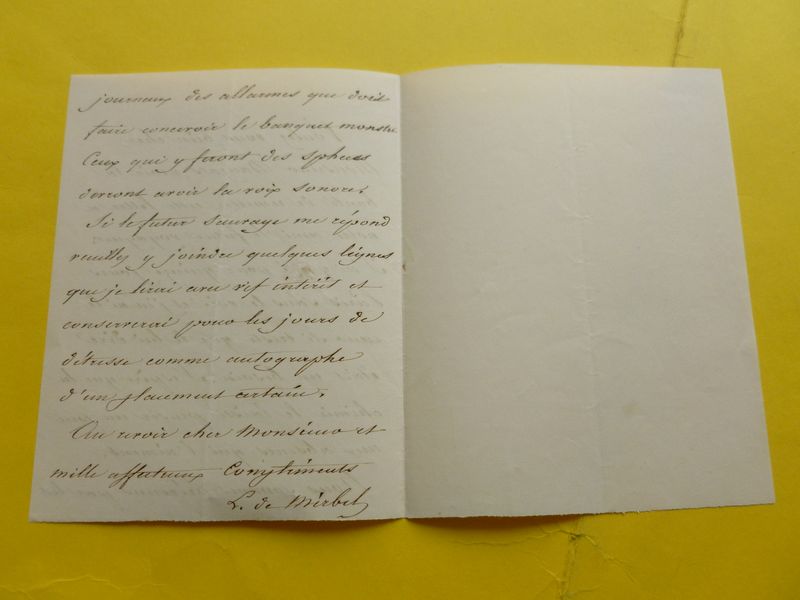 journaux des allarmes que doit
faire concevoir le banquet monstre
Ceux qui y feront des spheess
devront avoir la voix sonore.
Si le futur sauvage me répond
veuillez y joindre quelques lignes
que je lirai avec vif intérêt et
conserverai pour les jours de
détresse comme autographe
d'un placement certain.
Au revoir cher Monsieur et
mille affectueux Compliments
L. de Mirbel